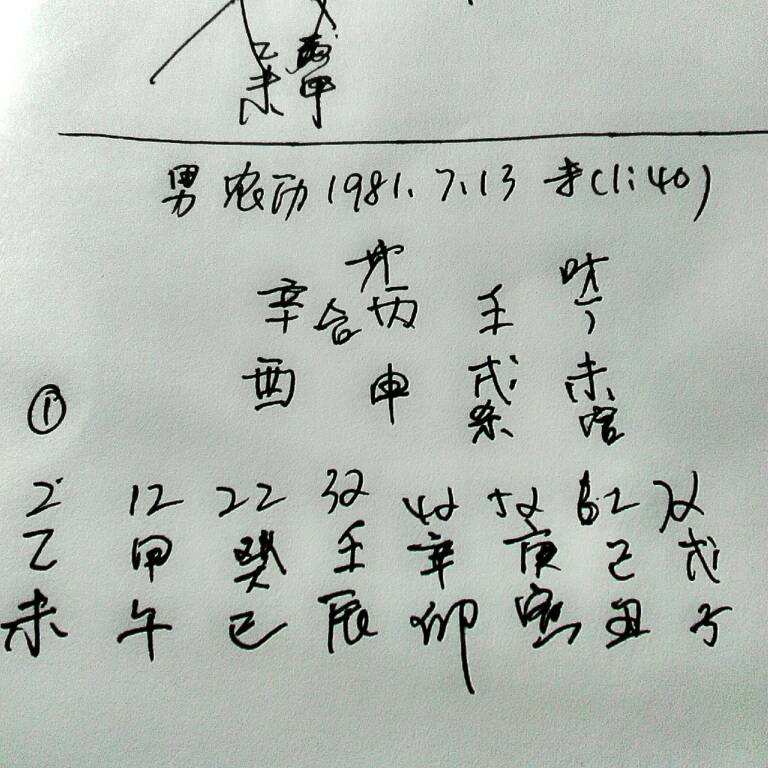 乙 丙
未 申
男 农历 1981.7.13 未(1:40)
财
辛 合 丙 壬 丁
酉 申 戌 未
①
2 12 22 32 42 52 62 72
乙 甲 癸 壬 辛 庚 己 戊
未 午 巳 辰 卯 寅 丑 子